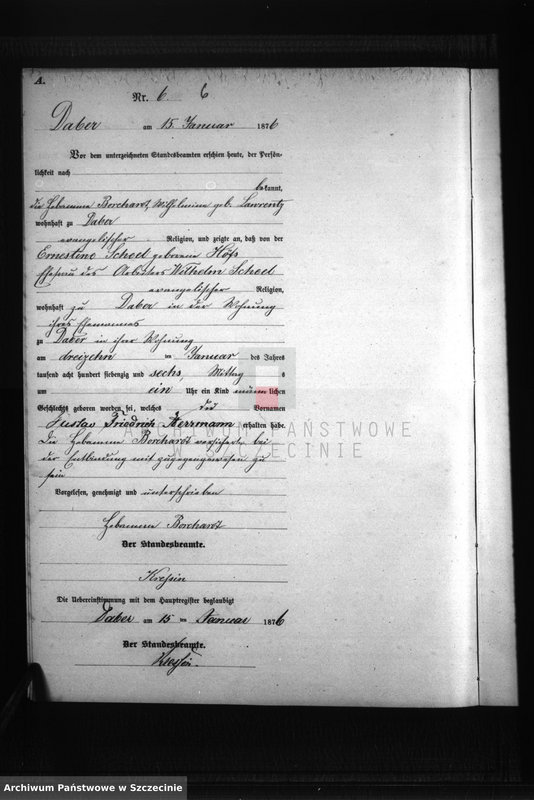 A.
Nr. 6 6
Daber am 15 Januar 1876
Vor dem unterzeichneten Standesbeamten erschien heute, der Persön-
lichkeit nach
bekannt,
die Hebamme Borchardt, Wilhelmine geb. Lawrentz
wohnhaft zu Daber
evangelischer Religion, und zeigte an, daß von der
Ernestine Scheel geborene Höfs
Ehefrau des Arbeiters Wilhelm Scheel
evangelischer Religion,
wohnhaft zu Daber in der Wohnung
ihres Ehemannes
zu Daber in ihrer Wohnung
am dreizehn ten Januar des Jahres
tausend acht hundert siebenzig und sechs, Mittags
um ein Uhr ein Kind männlichen
Geschlechts geboren worden sei, welches die Vornamen
Gustav Friedrich Herrmann erhalten habe.
Die Hebamme Borchardt versicherte bei
der Entbindung mit zugegen gewesen zu
sein
Vorgelesen, genehmigt und unterschrieben
Hebamme Borchardt
Der Standesbeamte.
Kressin
Die Uebereinstimmung mit dem Hauptregister beglaubigt
Daber am 15 ten Januar 1876
Der Standesbeamte.
Kressin.
ARCHIWUM PAŃSTWOWE
W SZCZECINIE
Archiwum Państwowe w Szczecinie